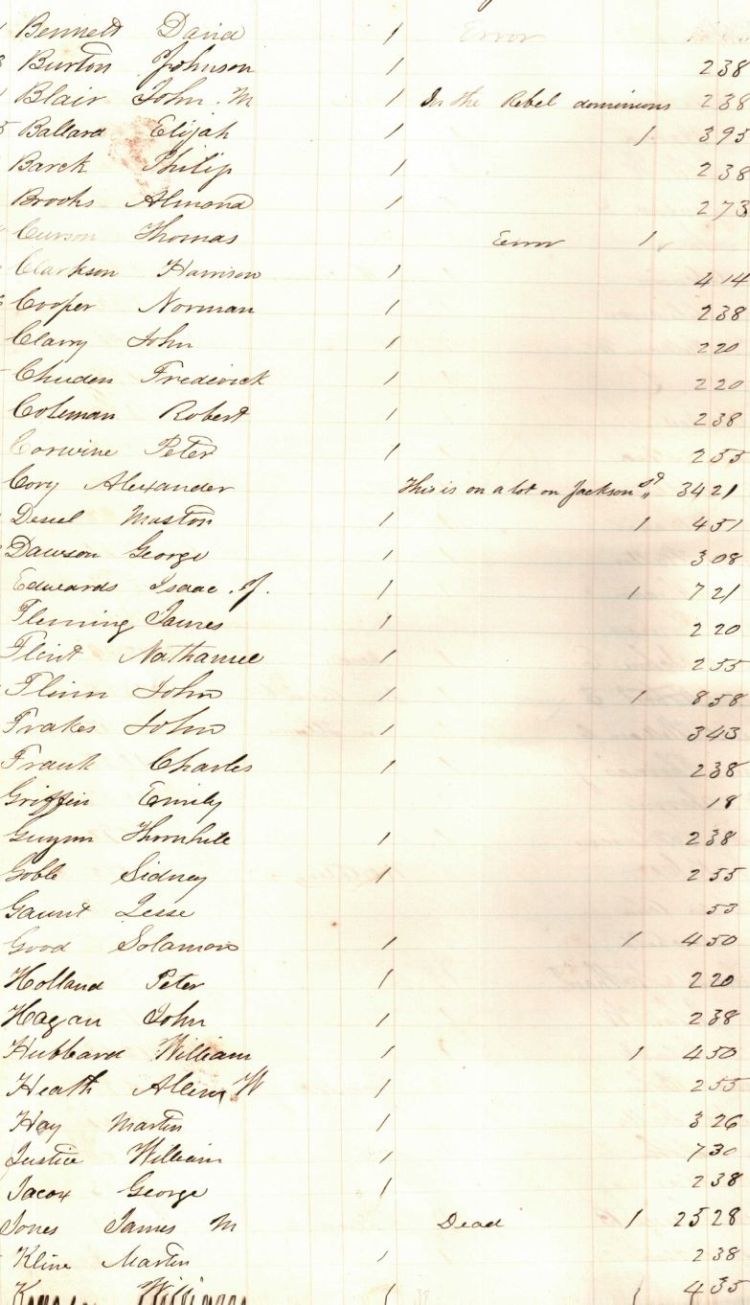 Bennett David 1 Error
Burton Johnson 1 238
Blair John. M 1 In the Rebel dominions 238
Ballard Elijah 1 1 395
Barck Philip 1 238
Brooks Almond 1 273
Curson Thomas Error 1
Clarkson Harrison 1 414
Cooper Norman 1 238
Clarry John 1 220
Frederick 1 220
Coleman Robert 1 238
Corwine Peter 1 255
Cory Alexander This is on a lot on Jackson st 3421
Maston 1 1 451
Dawson George 1 308
Edwards Isaac. J. 1 1 721
Fleming James 1 220
Flint Nathaniel 1 255
Flinn John 1 1 858
Frakes John 1 343
Frank Charles 1 238
Griffin Emily 18
Guynn Thornhill 1 238
Goble Sidney 1 255
Gaunt Jesse 53
Good Solamon 1 1 450
Holland Peter 1 220
Hagan John 1 238
Hubbard William 1 1 450
Heath W 1 255
Hay Martin 1 326
Justice William 1 730
Jacox George 1 238
Jones James M Dead 1 2528
Kline Martin 1 238
William 1 1 435